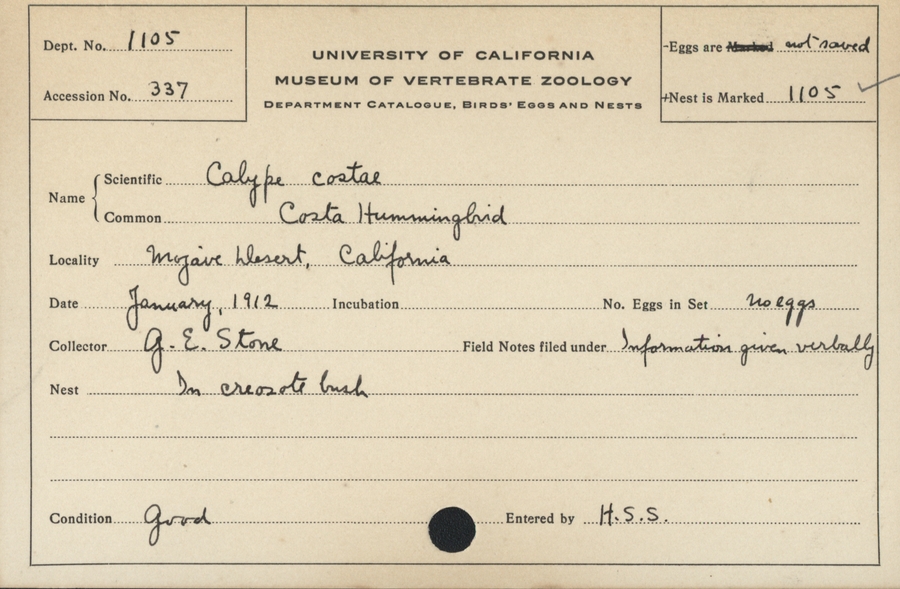 Dept. No. 1105
Accession No. 337
UNIVERSITY OF CALIFORNIA
MUSEUM OF VERTEBRATE ZOOLOGY
DEPARTMENT CATALOGUE, BIRDS' EGGS AND NESTS
-Eggs are Marked not saved
+Nest is Marked 1105
Name
Scientific Calype costae
Common Costa Hummingbird
Locality Mojave Desert, California
Date January, 1912 Incubation No. Eggs in Set no eggs
Collector G. E. Stone Field Notes filed under Information given verbally
Nest In creosote bush
Condition Good Entered by H.S.S.